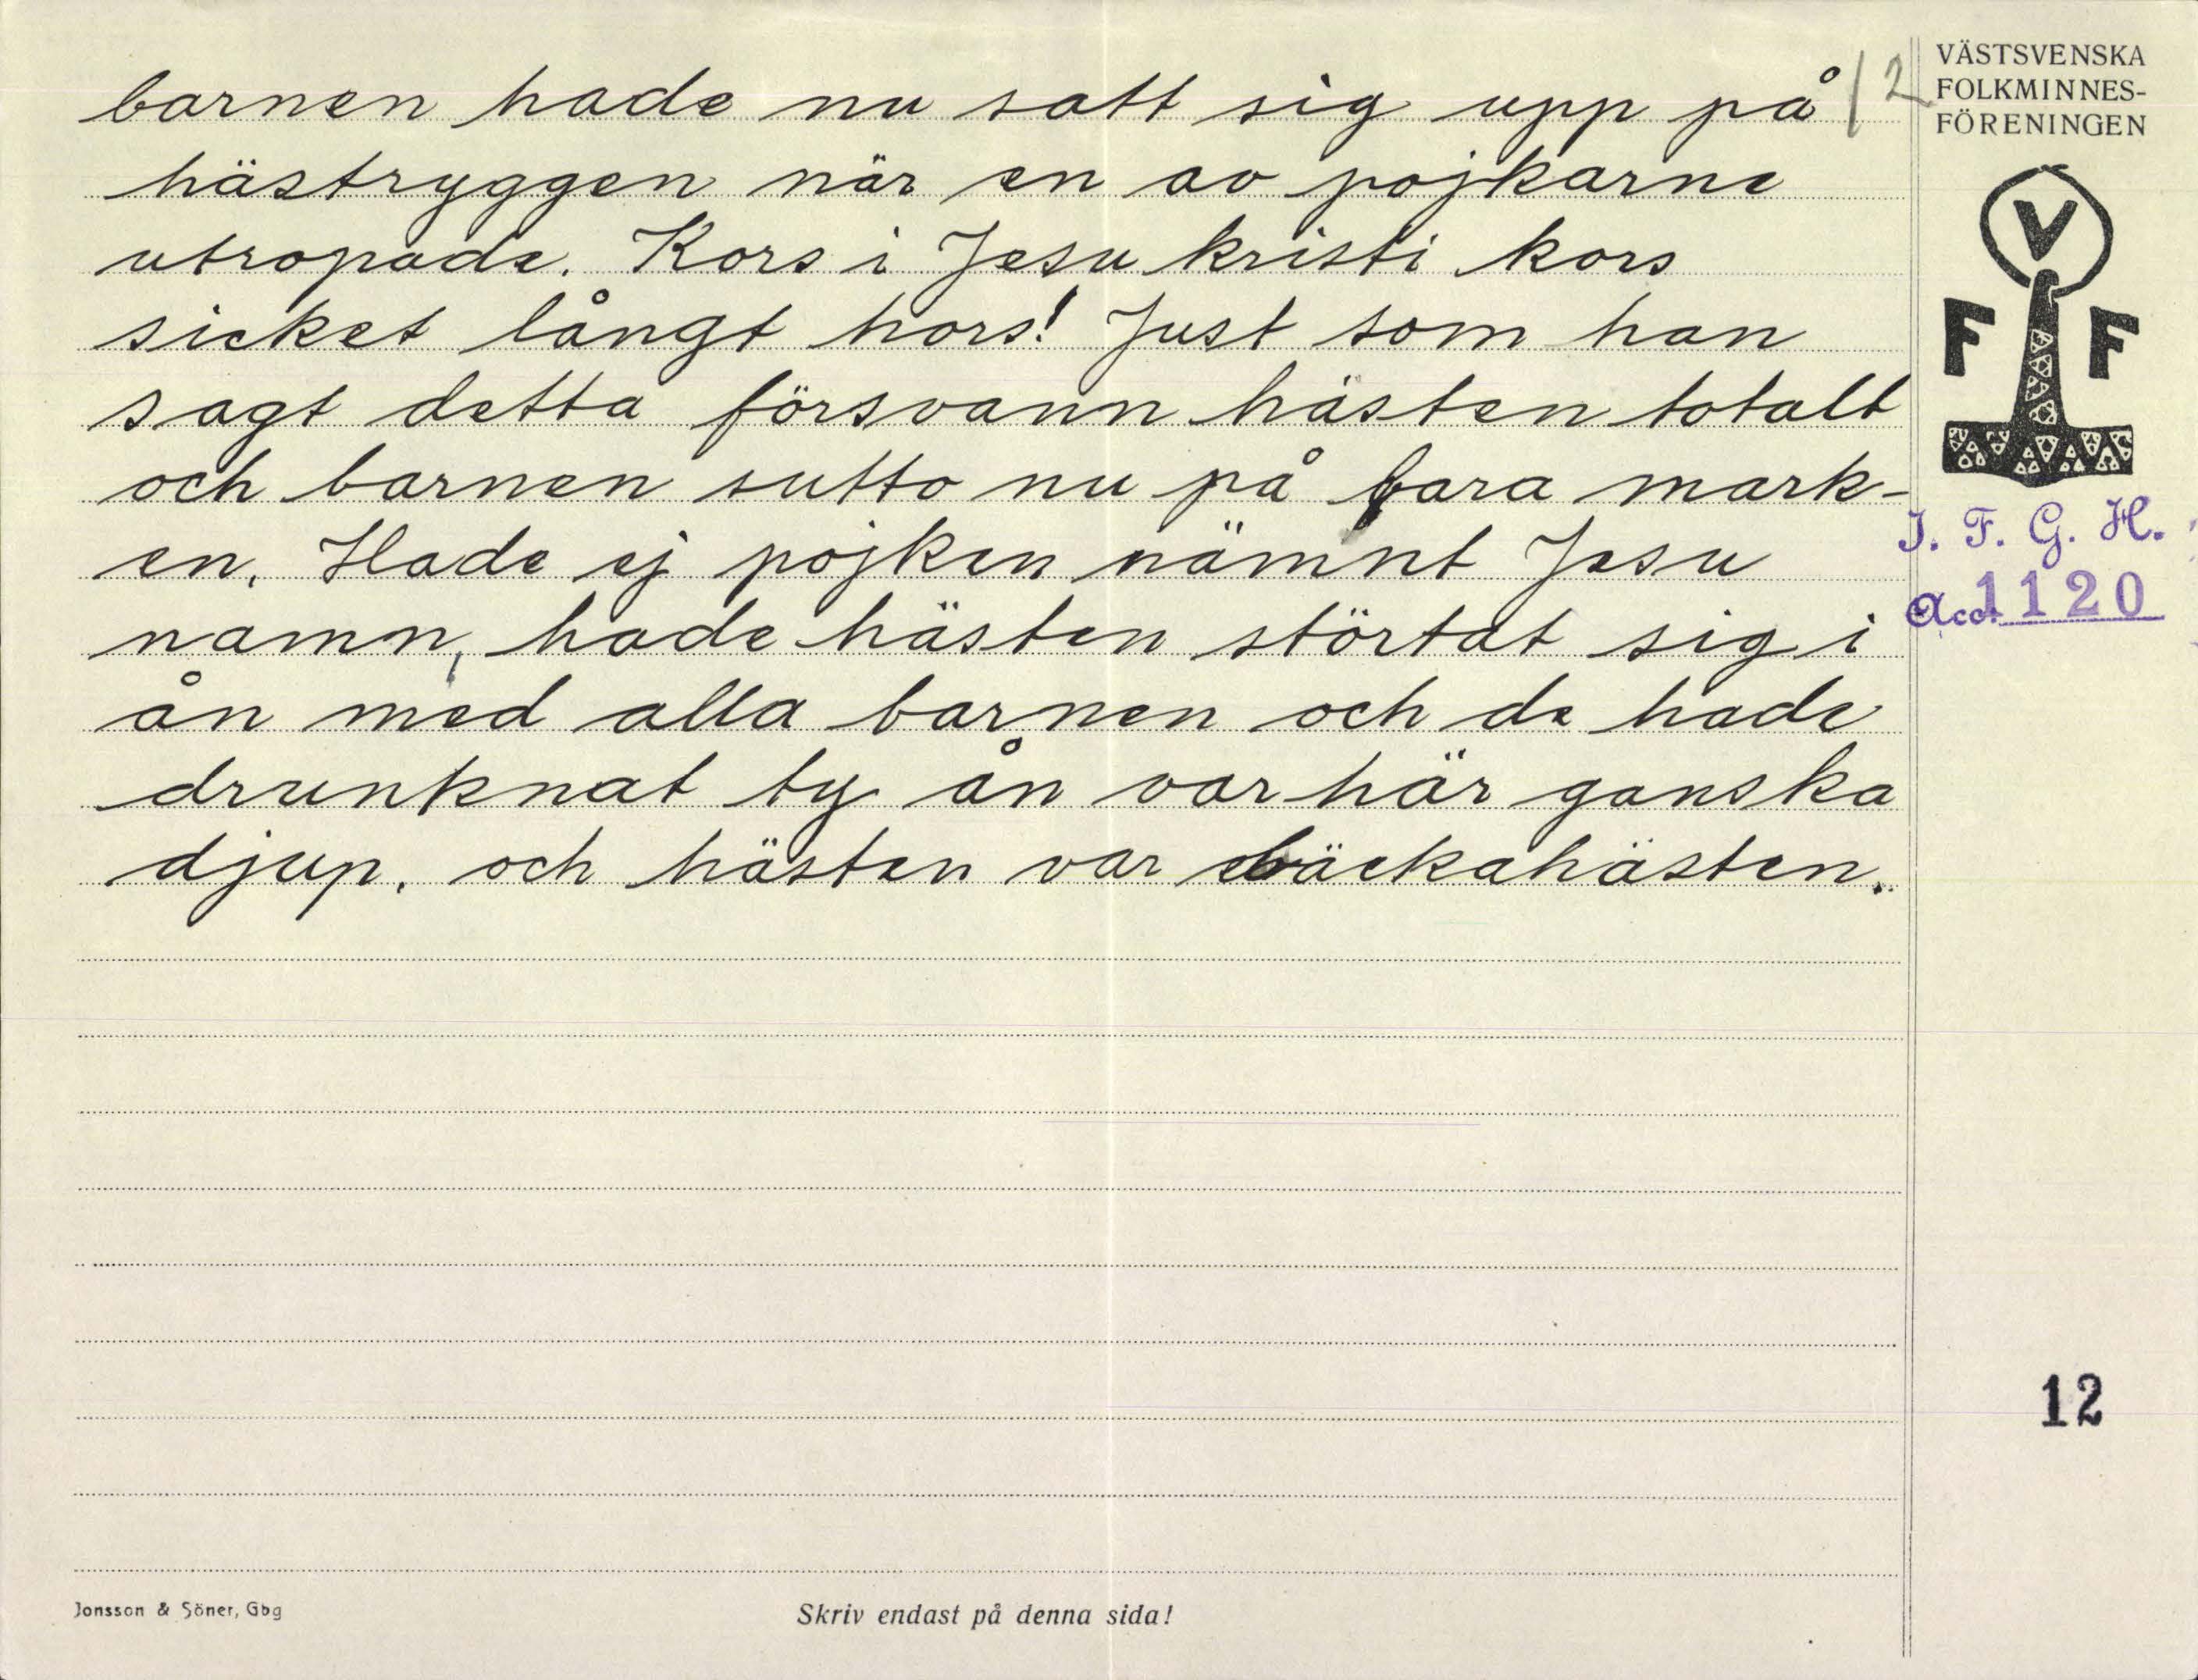 barnen hade nu satt sig upp på
hästryggen när en av pojkarne
utropade. Kors i Jesu kristi kors
sicket långt hors! Just som han
sagt detta försvann hästen totalt
och barnen sutto nu på bara mark-
en. Hade ej pojken nämnt Jesu
namn, hade hästen störtat sig i
ån med alla barnen och de hade
drunknat ty ån var här ganska
djup, och hästen var bäckahästen.
12
VÄSTSVENSKA
FOLKMINNES-
FÖRENINGEN
V
F F
I. F. G. H.
Acc. 1120
12
Jonsson & Söner, Gbg
Skriv endast på denna sida!